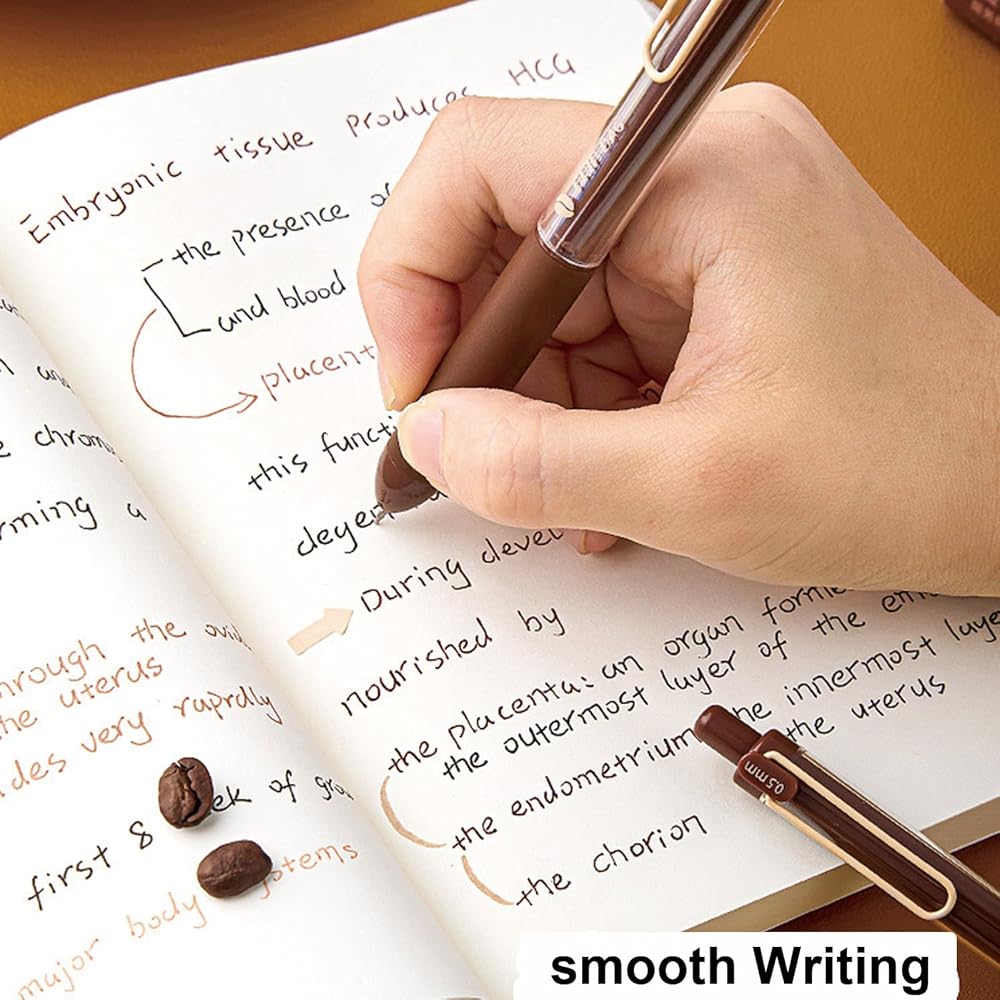 the chrom
rming a
through the
the uterus
des very raprdly
first 8
ek of grow
major body stems
Embryonic tissue produces HCG
the presence of
and blood
placent
this functi
degen
During devel
nourished by
the placenta: an organ forme
the outermost layer of the em
the endometrium the innermost laye
the uterus
the chorion
0.5mm
smooth Writing